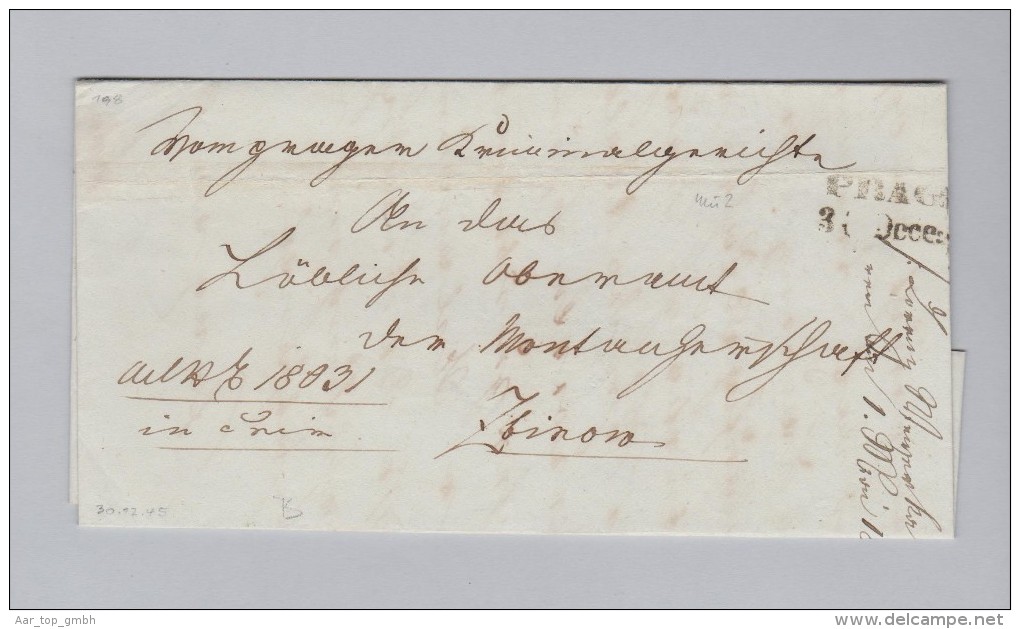 198
Vom prager Kriminalgerichte
PRAG
3 Decem
mü2
An das
Löbliche Oberamt
der Montanherrschaft
ad NE 18031
in Crim.
Zbirow
30.12.45
1. Mai
Aar_top_gmbh
www.delcampe.net